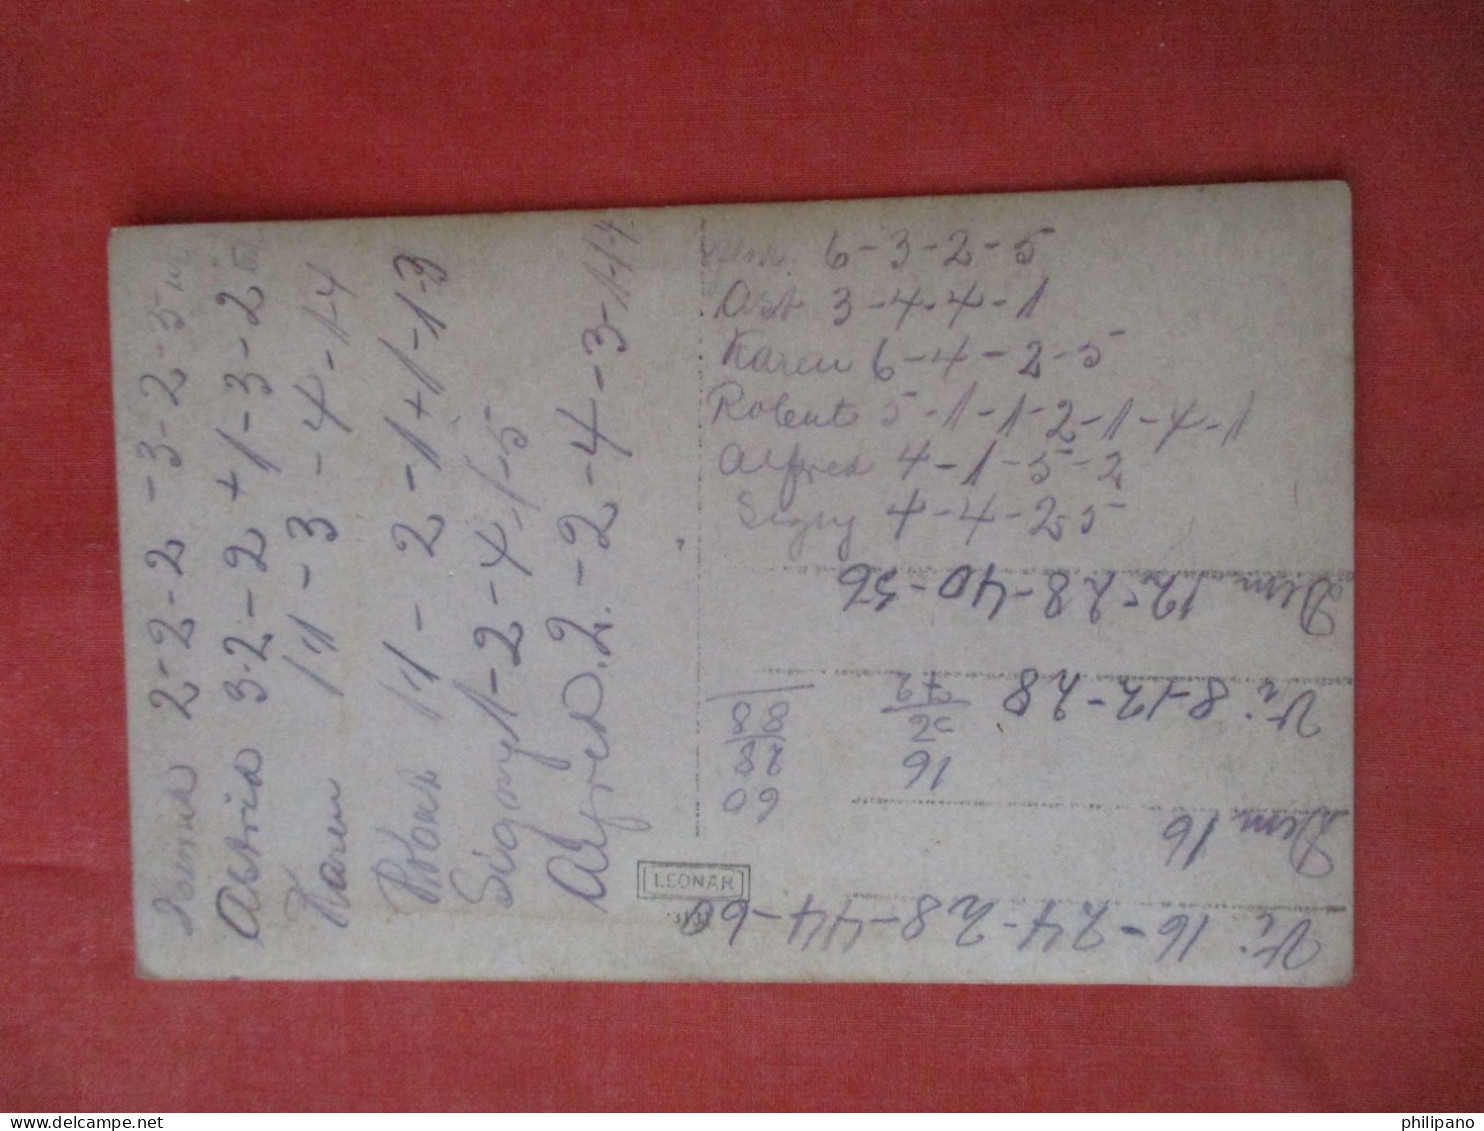 2-2-2-2-3-2-3-
Astrid 3-2-2+1-3-2
Karen 1-1-3-4-1-4
Robert 1-1-2-1+1-1-3
Signy 1-2-4-1-5
Alfred. 2.-2-4-3-1-4-
6-3-2-5
Ast 3-4-4-1
Karen 6-4-2-5
Robert 5-1-1-2-1-4-1
Alfred 4-1-5-2
Signy 4-4-2-5
Dem 12-28-40-56
Vi: 8-12-28
72
16
88
28
60
Dem 16
Vi: 16-24-28-44-60
LEONAR
philipano